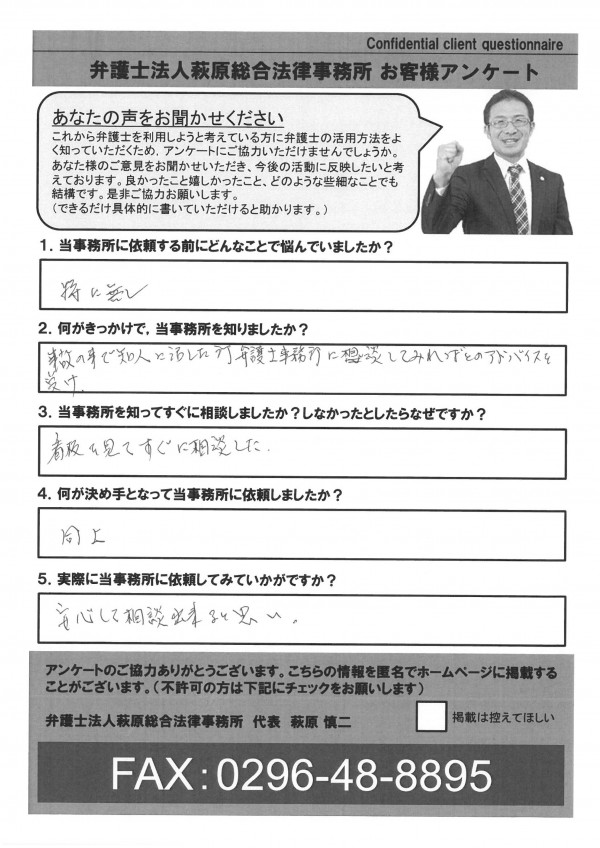 Confidential client questionnaire
弁護士法人萩原総合法律事務所 お客様アンケート
あなたの声をお聞かせください
これから弁護士を利用しようと考えている方に弁護士の活用方法をよ
く知っていただくため，アンケートにご協力いただけませんでしょうか。
あなた様のご意見をお聞かせいただき、今後の活動に反映したいと考
えております。良かったこと嬉しかったこと、どのような些細なことでも
結構です。是非ご協力お願いします。
（できるだけ具体的に書いていただけると助かります。）
1．当事務所に依頼する前にどんなことで悩んでいましたか？
特に無し
2．何がきっかけで，当事務所を知りましたか？
事故の事で知人と話したら弁護士事務所に相談してみればとのアドバイスを
受け、
3．当事務所を知ってすぐに相談しましたか？しなかったとしたらなぜですか？
看板を見てすぐに相談した.
4．何が決め手となって当事務所に依頼しましたか？
同上
5．実際に当事務所に依頼してみていかがですか？
安心して相談出来ると思い。
アンケートのご協力ありがとうございます。こちらの情報を匿名でホームページに掲載する
ことがございます。（不許可の方は下記にチェックをお願いします）
弁護士法人萩原総合法律事務所 代表 萩原 慎二
掲載は控えてほしい
FAX：0296-48-8895